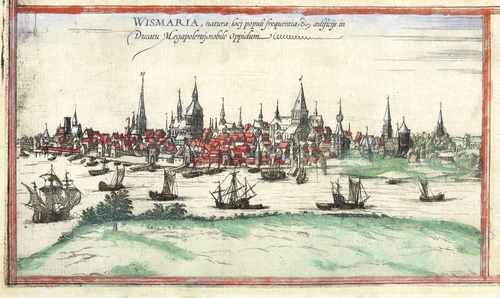 WISMARIA, natura loci populi frequentia, & ædificijs in
Ducatu Megapolensi, nobile Oppidum